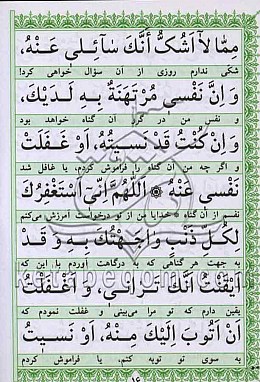 مِمّٰا لاٰ اَشُكُّ اَنَّكَ سٰٓائِلِى عَنْهُ،
شکی ندارم روزی از آن سؤال خواهی کرد!
وَ اِنَّ نَفْسِى مُرْتَهَنَةٌ بِهِ لَدَيْكَ،
و نفس من در گرو آن گناه خواهد بود
وَ اِنْ كُنْتُ قَدْ نَسِيتُهُ، اَوْ غَفَلَتْ
و اگر چه من آن گناه را فراموش کردم، یا غافل شد
نَفْسِى عَنْهُ ۞ اَللّٰهُمَّ اِنِّىٓ اَسْتَغْفِرُكَ
نفسم از آن گناه، خدایا من از تو درخواست آمرزش می‌کنم
لِكُلِّ ذَنْبٍ وٰاجَهْتُكَ بِهِ وَ قَدْ
به جهت هر گناهی که به درگاهت آوردم با این که
اَيْقَنْتُ اَنَّكَ تَرٰانِى، وَ اَغْفَلْتُ
یقین دارم که تو مرا می‌بینی و غفلت نمودم که
اَنْ اَتُوبَ اِلَيْكَ مِنْهُ، اَوْ نَسِيتُ
به سوی تو توبه کنم، یا فراموش کردم